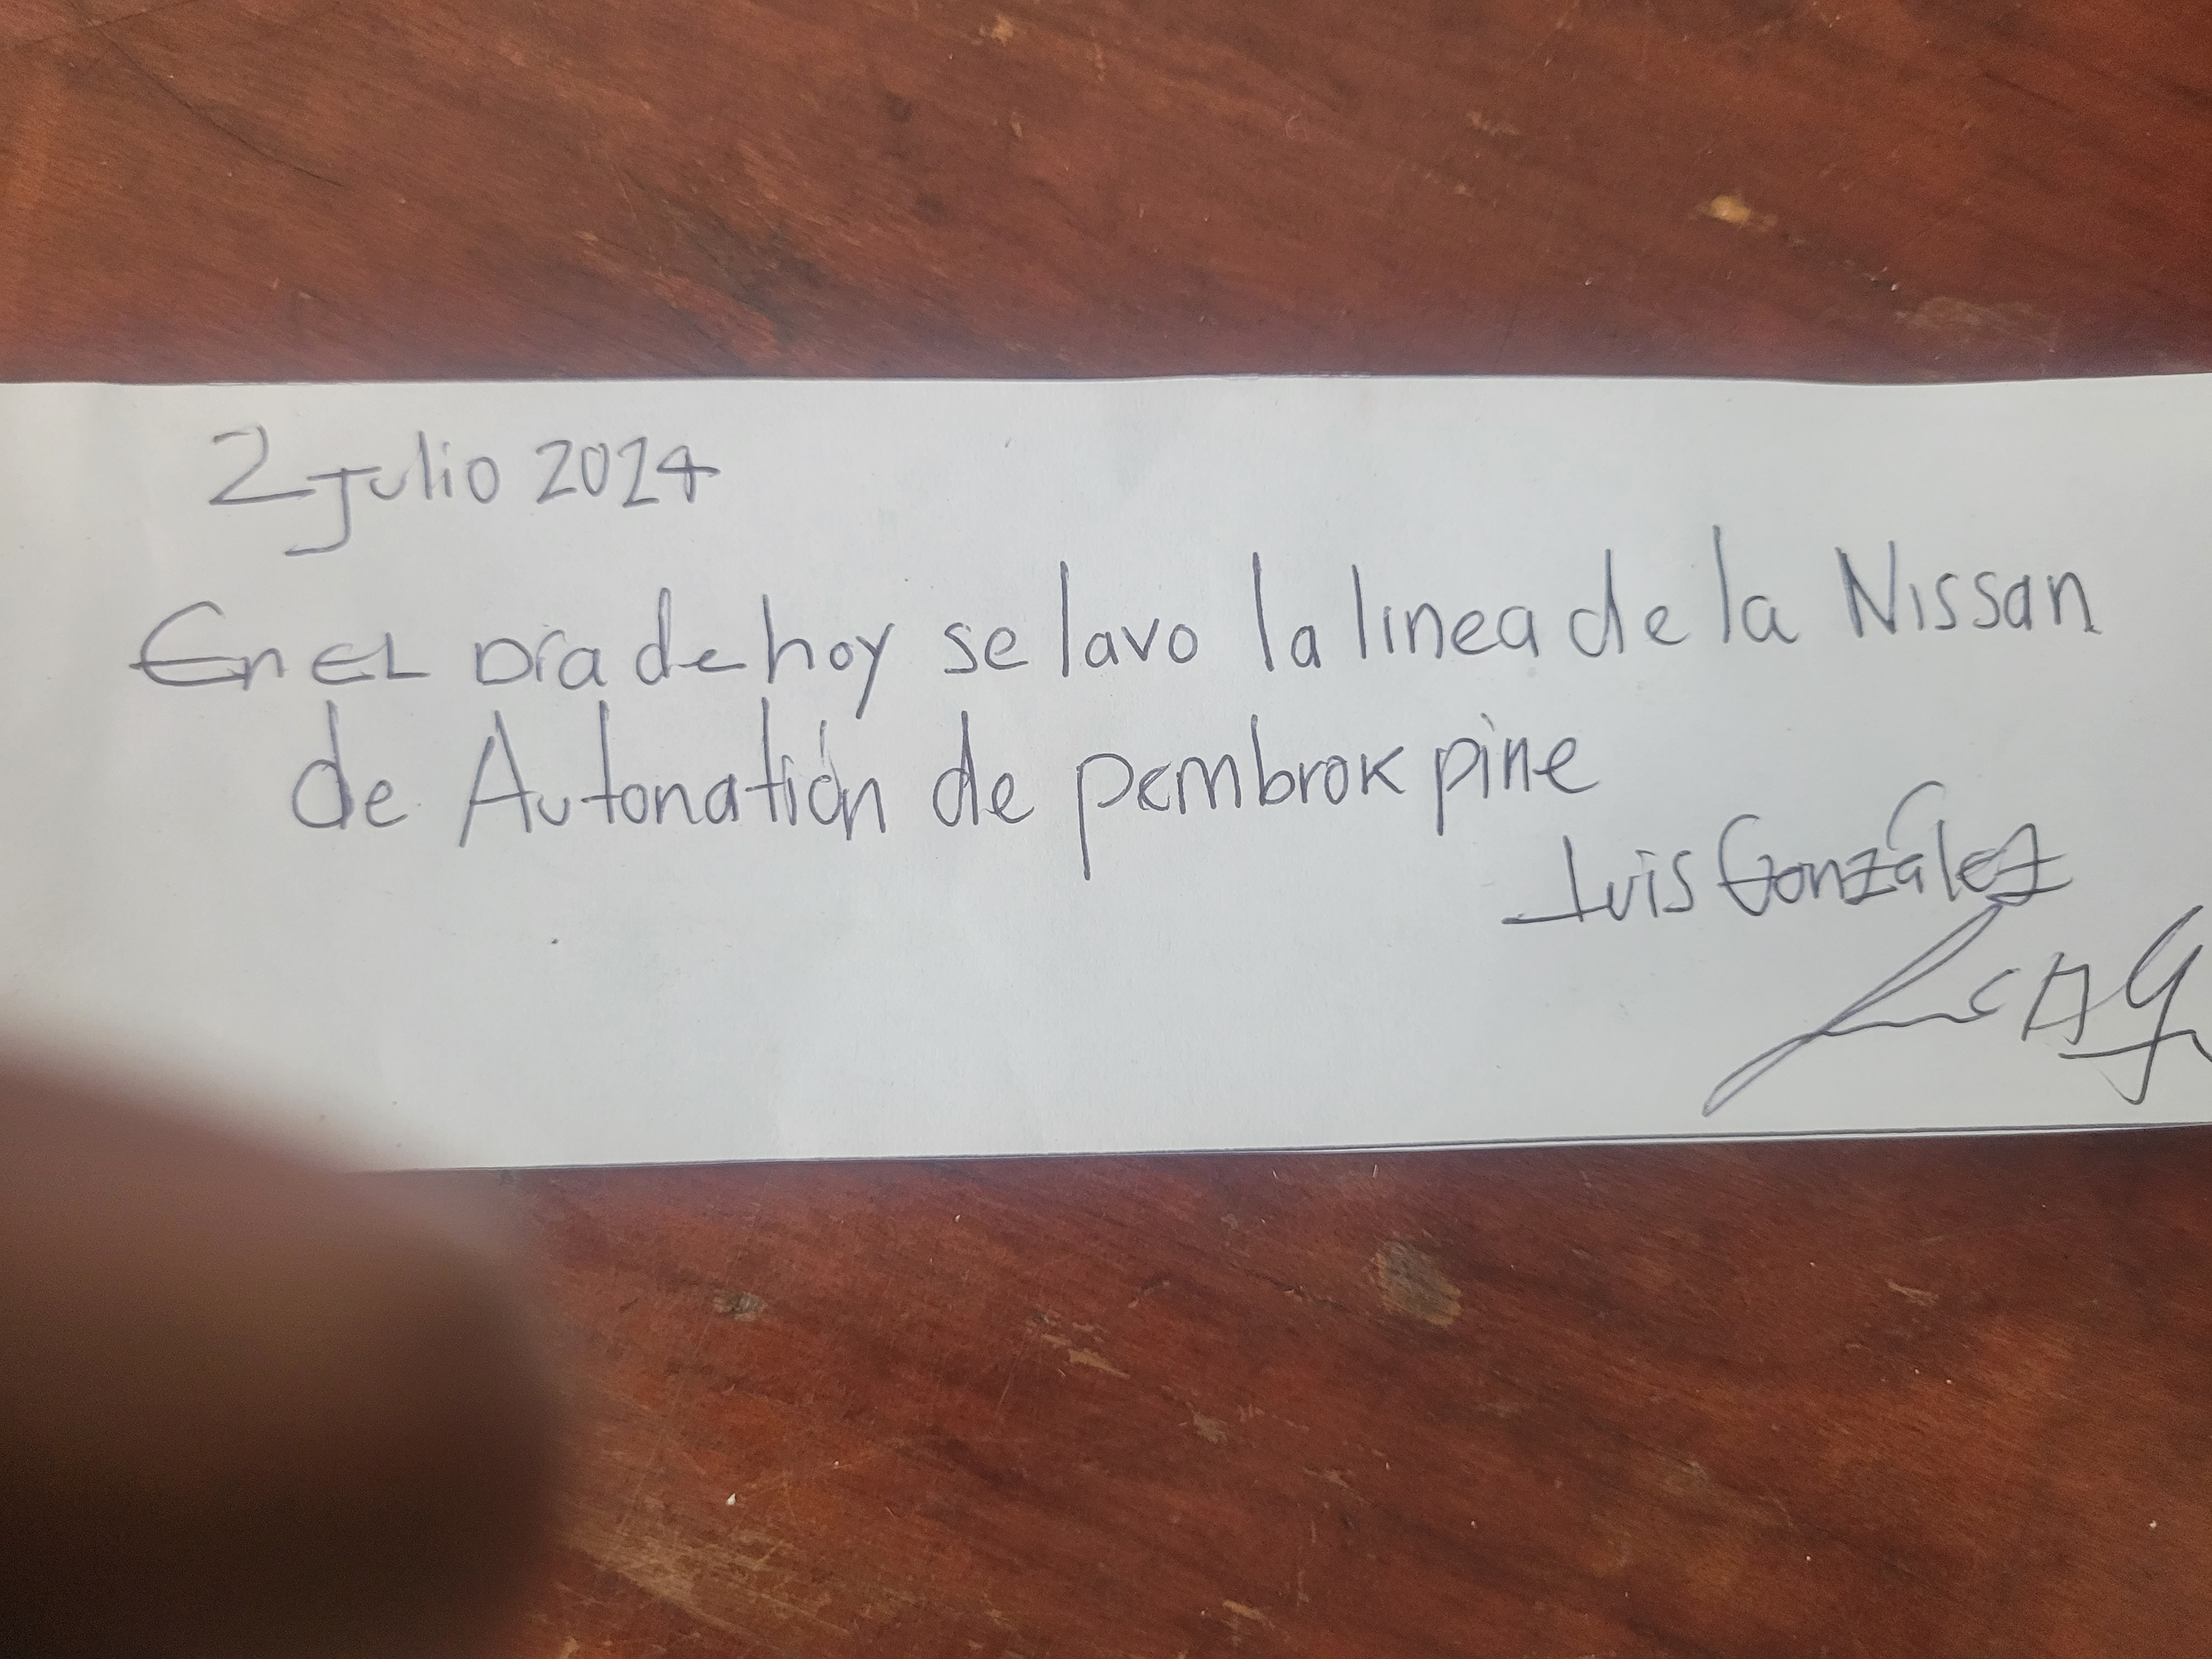 2 Julio 2024
En EL Día de hoy se lavo la linea de la Nissan
de Autonatión de pembrok pine
Luis González